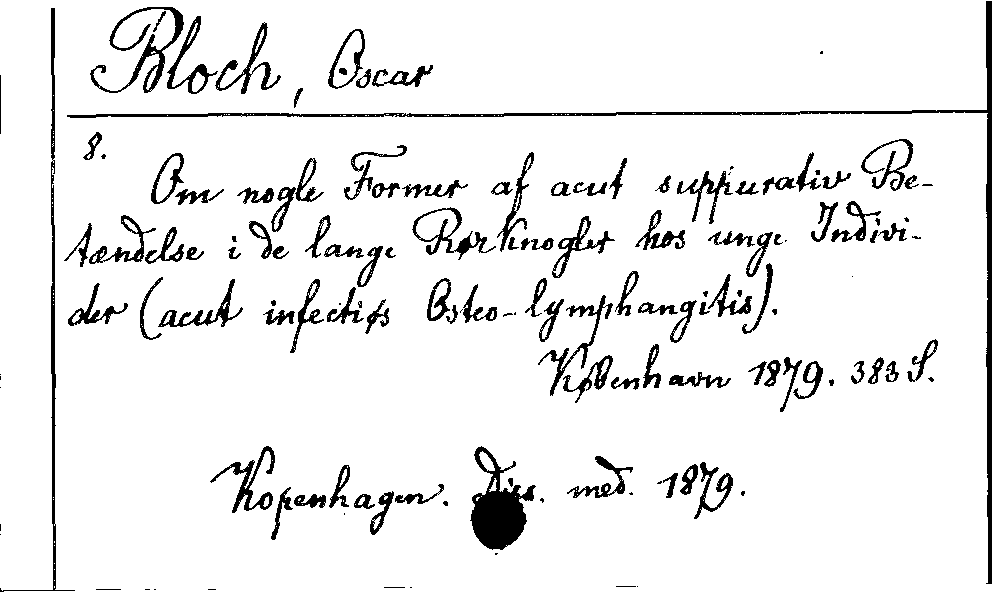 Bloch, Oscar
8.
Om nogle Former af acut suppurativ Be-
tændelse i de lange Rørknogler hos unge Indivi-
der (acut infectiøs Osteo-lymphangitis).
København 1879. 383 S.
Kopenhagen. Diss. med. 1879.